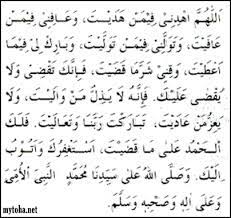 اَللّٰهُمَّ اهْدِنِيْ فِيْمَنْ هَدَيْتَ، وَعَافِنِيْ فِيْمَنْ
عَافَيْتَ، وَتَوَلَّنِيْ فِيْمَنْ تَوَلَّيْتَ، وَبَارِكْ لِيْ فِيْمَا
اَعْطَيْتَ، وَقِنِيْ شَرَّمَا قَضَيْتَ، فَاِنَّكَ تَقْضِيْ وَلَا
يُقْضٰى عَلَيْكَ. فَاِنَّهُ لَا يَذِلُّ مَنْ وَالَيْتَ، وَلَا
يَعِزُّمَنْ عَادَيْتَ، تَبَارَكْتَ رَبَّنَا وَتَعَالَيْتَ، فَلَكَ
الْحَمْدُ عَلٰى مَا قَضَيْتَ، اَسْتَغْفِرُكَ وَاَتُوْبُ
اِلَيْكَ. وَصَلَّى اللهُ عَلٰى سَيِّدِنَا مُحَمَّدٍ النَّبِيِّ الْاُمِّيِّ
وَعَلٰى اٰلِهِ وَصَحْبِهِ وَسَلَّمَ.
mytoha.net